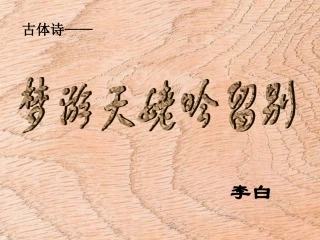 古体诗——
梦游天姥吟留别
李白